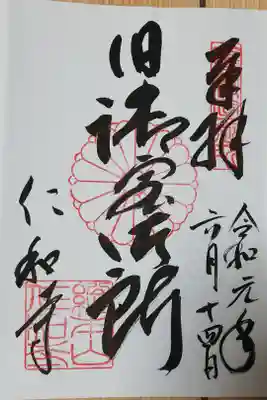 奉拝
令和元年
六月十四日
旧御室御所
仁和寺